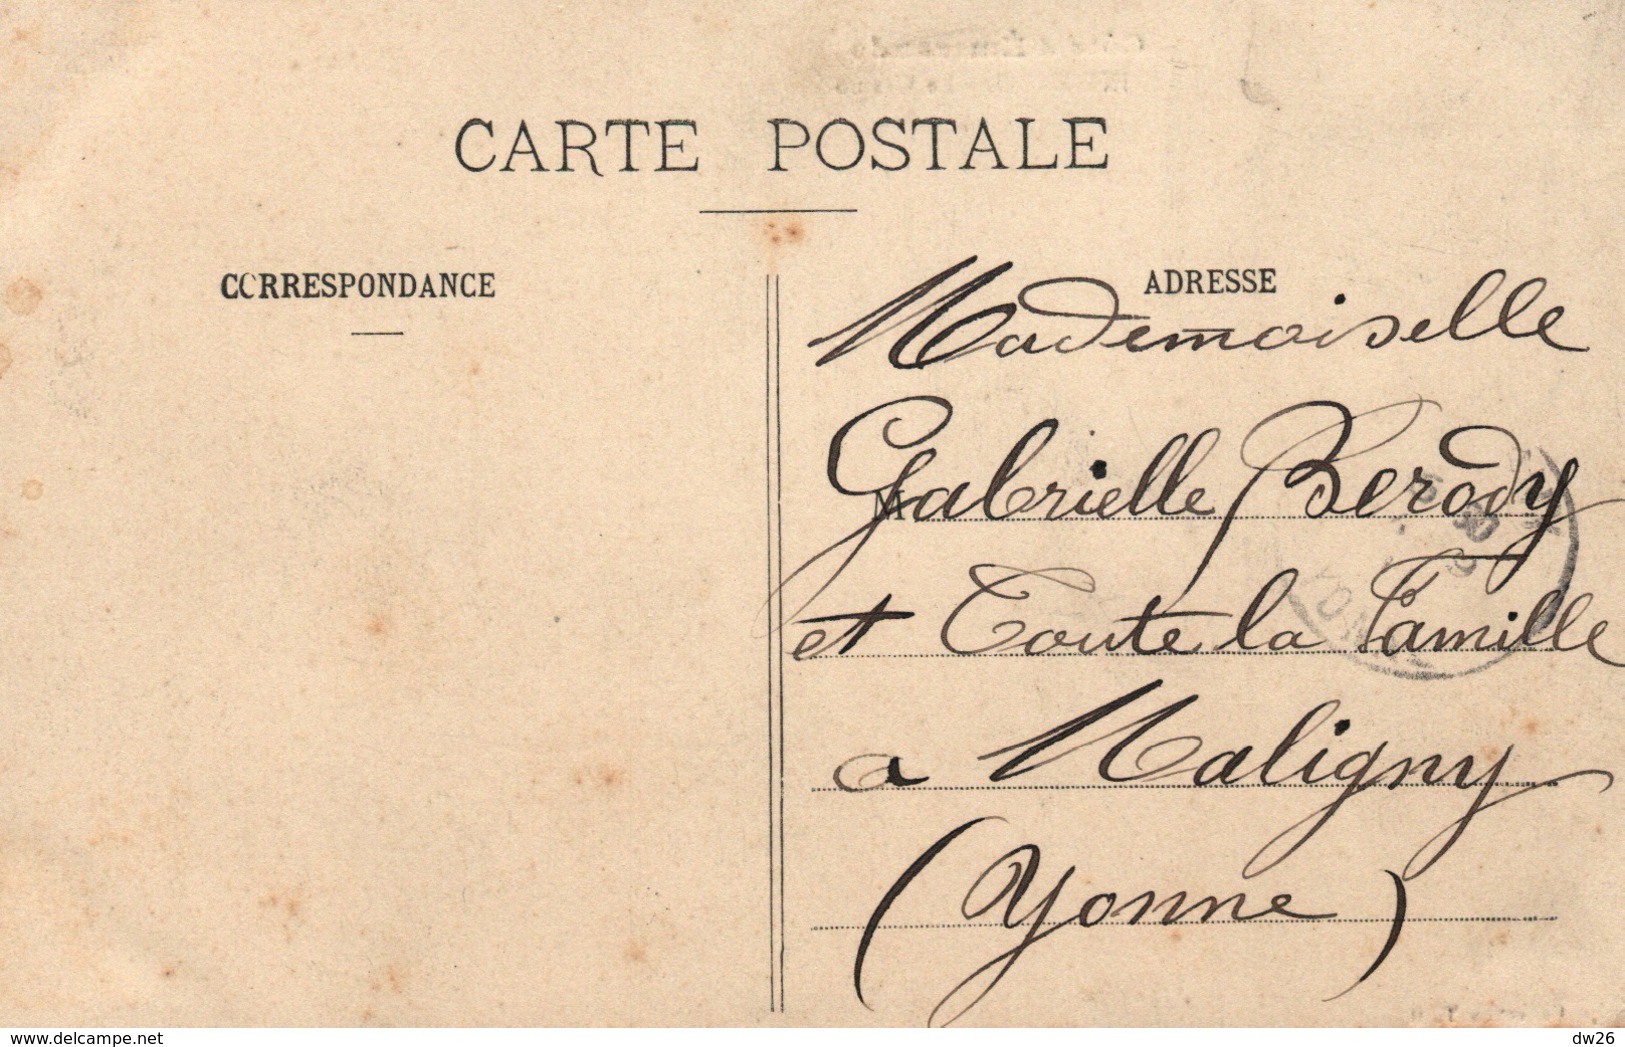 CARTE POSTALE
CORRESPONDANCE
ADRESSE
Mademoiselle
M Gabrielle Berody
et Toute la Famille
a Maligny
(Yonne)
delcampe.net
dw26